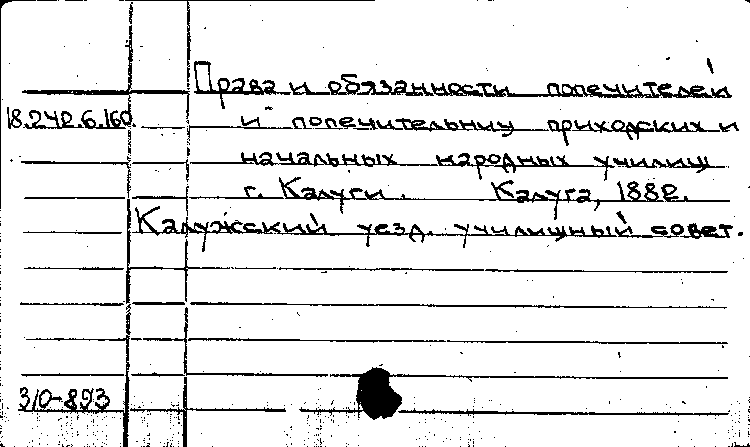 Права и обязанности попечителей
18.242.6.160. и попечительниц приходских и
начальных народных училищ
г. Калуги. Калуга, 1882.
Калужский уезд. училищный совет.
310-893